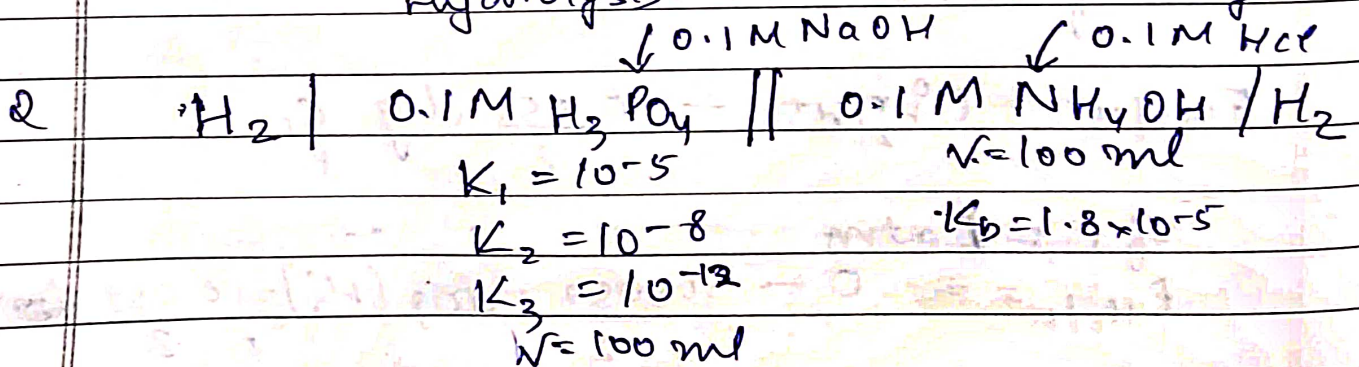 ↓ 0.1 M NaOH ↙ 0.1M HCl
Q H2 | 0.1M H3PO4 || 0.1 M NH4OH / H2
K1 = 10-5 V=100 ml
K2 = 10-8 Kb = 1.8×10-5
K3 =
V= 100 ml